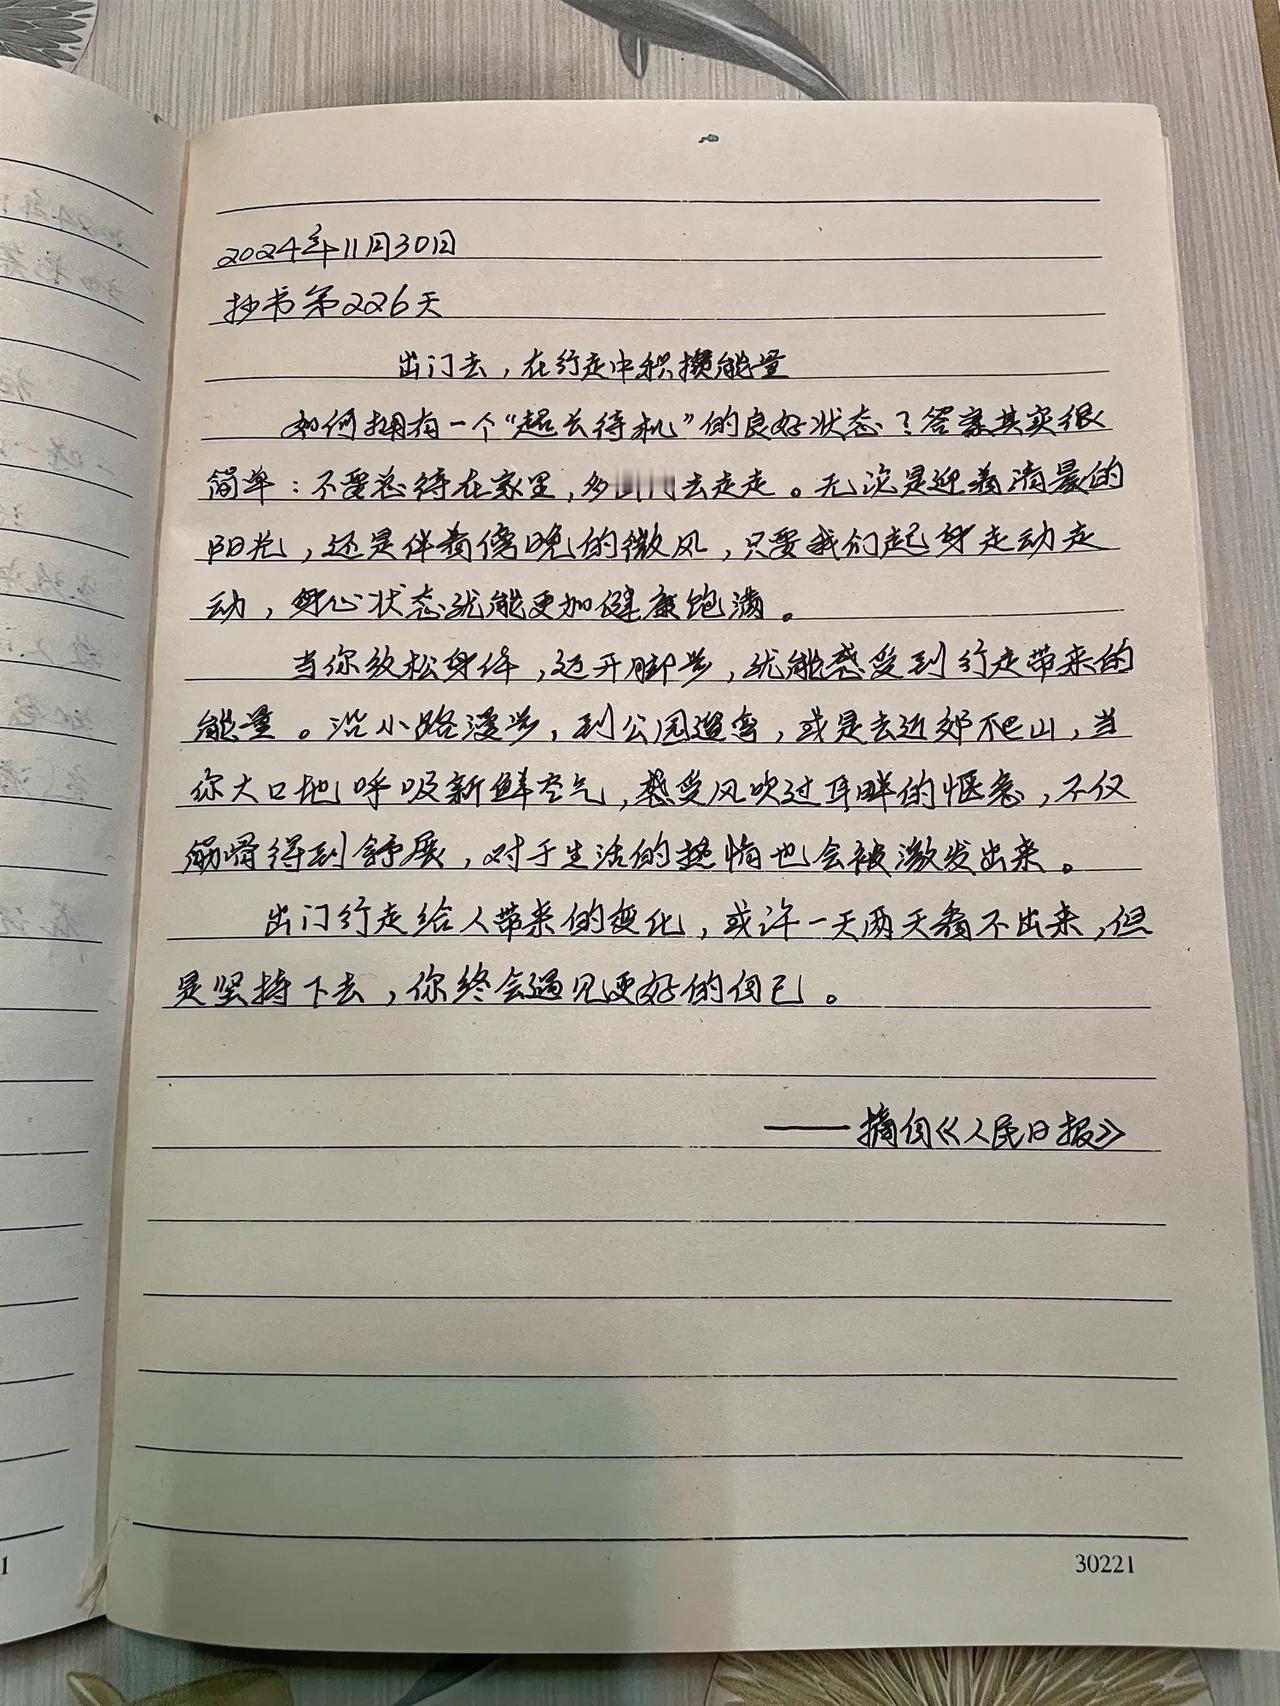 2024年11月30日
抄书第226天
出门去，在行走中积攒能量
如何拥有一个“超长待机”的良好状态？答案其实很
简单：不要总待在家里，多出门去走走。无论是迎着清晨的
阳光，还是伴着傍晚的微风，只要我们起身走动走
动，身心状态就能更加健康饱满。
当你放松身体，迈开脚步，就能感受到行走带来的
能量。沿小路漫步，到公园遛弯，或是去近郊爬山，当
你大口地呼吸新鲜空气，感受风吹过耳畔的惬意，不仅
筋骨得到舒展，对于生活的热情也会被激发出来。
出门行走给人带来的变化，或许一天两天看不出来，但
是坚持下去，你终会遇见更好的自己。
——摘自《人民日报》
30221